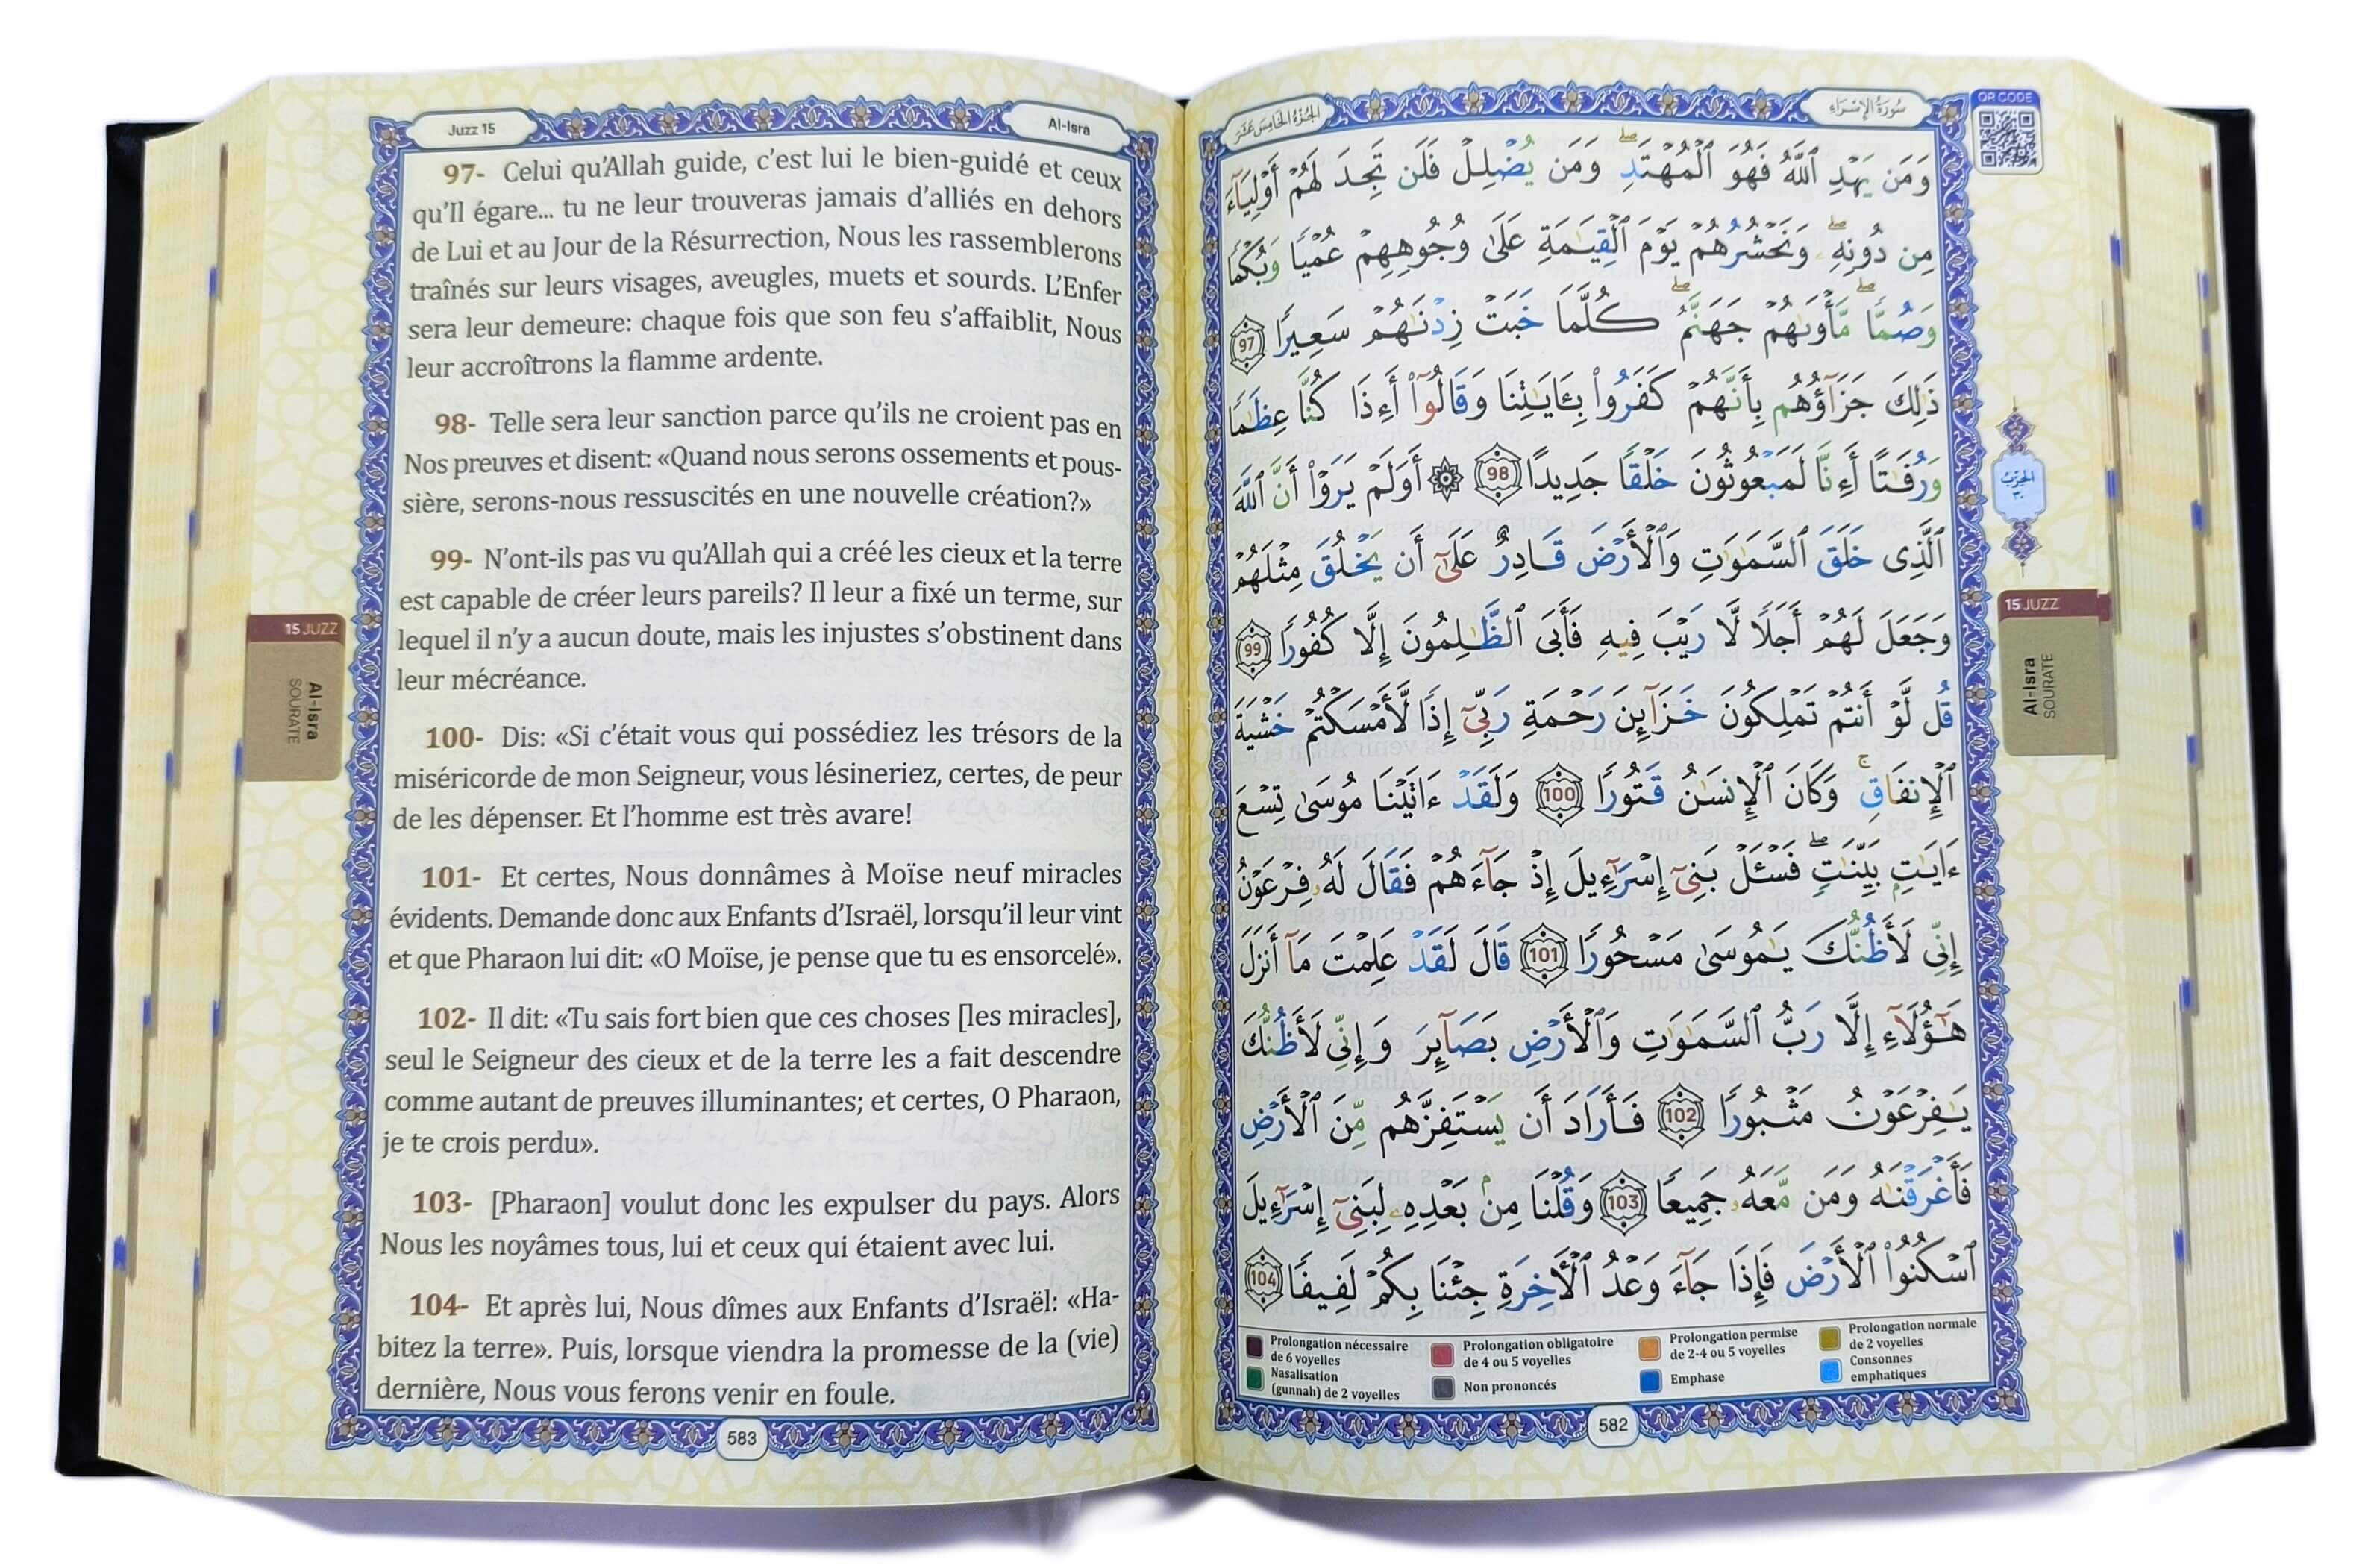 Juzz 15
Al-Isra
97- Celui qu’Allah guide, c’est lui le bien-guidé et ceux
qu’Il égare... tu ne leur trouveras jamais d’alliés en dehors
de Lui et au Jour de la Résurrection, Nous les rassemblerons
traînés sur leurs visages, aveugles, muets et sourds. L’Enfer
sera leur demeure: chaque fois que son feu s’affaiblit, Nous
leur accroîtrons la flamme ardente.
98- Telle sera leur sanction parce qu’ils ne croient pas en
Nos preuves et disent: «Quand nous serons ossements et pous-
sière, serons-nous ressuscités en une nouvelle création?»
99- N’ont-ils pas vu qu’Allah qui a créé les cieux et la terre
est capable de créer leurs pareils? Il leur a fixé un terme, sur
lequel il n’y a aucun doute, mais les injustes s’obstinent dans
leur mécréance.
100- Dis: «Si c’était vous qui possédiez les trésors de la
miséricorde de mon Seigneur, vous lésineriez, certes, de peur
de les dépenser. Et l’homme est très avare!
101- Et certes, Nous donnâmes à Moïse neuf miracles
évidents. Demande donc aux Enfants d’Israël, lorsqu’il leur vint
et que Pharaon lui dit: «O Moïse, je pense que tu es ensorcelé».
102- Il dit: «Tu sais fort bien que ces choses [les miracles],
seul le Seigneur des cieux et de la terre les a fait descendre
comme autant de preuves illuminantes; et certes, O Pharaon,
je te crois perdu».
103- [Pharaon] voulut donc les expulser du pays. Alors
Nous les noyâmes tous, lui et ceux qui étaient avec lui.
104- Et après lui, Nous dîmes aux Enfants d’Israël: «Ha-
bitez la terre». Puis, lorsque viendra la promesse de la (vie)
dernière, Nous vous ferons venir en foule.
583
15 JUZZ
Al-Isra
SOURATE
سُورَةُ الإِسْرَاءِ
الجُزْءُ الخَامِسَ عَشَرَ
QR CODE
وَمَن يَهْدِ ٱللَّهُ فَهُوَ ٱلْمُهْتَدِ ۖ وَمَن يُضْلِلْ فَلَن تَجِدَ لَهُمْ أَوْلِيَآءَ
مِن دُونِهِۦ ۖ وَنَحْشُرُهُمْ يَوْمَ ٱلْقِيَـٰمَةِ عَلَىٰ وُجُوهِهِمْ عُمْيًا وَبُكْمًا
وَصُمًّا ۖ مَّأْوَىٰهُمْ جَهَنَّمُ ۖ كُلَّمَا خَبَتْ زِدْنَـٰهُمْ سَعِيرًا 97
ذَٰلِكَ جَزَآؤُهُم بِأَنَّهُمْ كَفَرُوا۟ بِـَٔايَـٰتِنَا وَقَالُوٓا۟ أَءِذَا كُنَّا عِظَـٰمًا
وَرُفَـٰتًا أَءِنَّا لَمَبْعُوثُونَ خَلْقًا جَدِيدًا 98 ۞ أَوَلَمْ يَرَوْا۟ أَنَّ ٱللَّهَ
ٱلَّذِى خَلَقَ ٱلسَّمَـٰوَٰتِ وَٱلْأَرْضَ قَادِرٌ عَلَىٰٓ أَن يَخْلُقَ مِثْلَهُمْ
وَجَعَلَ لَهُمْ أَجَلًا لَّا رَيْبَ فِيهِ فَأَبَى ٱلظَّـٰلِمُونَ إِلَّا كُفُورًا 99
قُل لَّوْ أَنتُمْ تَمْلِكُونَ خَزَآئِنَ رَحْمَةِ رَبِّىٓ إِذًا لَّأَمْسَكْتُمْ خَشْيَةَ
ٱلْإِنفَاقِ ۚ وَكَانَ ٱلْإِنسَـٰنُ قَتُورًا 100 وَلَقَدْ ءَاتَيْنَا مُوسَىٰ تِسْعَ
ءَايَـٰتٍۭ بَيِّنَـٰتٍ ۖ فَسْـَٔلْ بَنِىٓ إِسْرَٰٓءِيلَ إِذْ جَآءَهُمْ فَقَالَ لَهُۥ فِرْعَوْنُ
إِنِّى لَأَظُنُّكَ يَـٰمُوسَىٰ مَسْحُورًا 101 قَالَ لَقَدْ عَلِمْتَ مَآ أَنزَلَ
هَـٰٓؤُلَآءِ إِلَّا رَبُّ ٱلسَّمَـٰوَٰتِ وَٱلْأَرْضِ بَصَآئِرَ وَإِنِّى لَأَظُنُّكَ
يَـٰفِرْعَوْنُ مَثْبُورًا 102 فَأَرَادَ أَن يَسْتَفِزَّهُم مِّنَ ٱلْأَرْضِ
فَأَغْرَقْنَـٰهُ وَمَن مَّعَهُۥ جَمِيعًا 103 وَقُلْنَا مِنۢ بَعْدِهِۦ لِبَنِىٓ إِسْرَٰٓءِيلَ
ٱسْكُنُوا۟ ٱلْأَرْضَ فَإِذَا جَآءَ وَعْدُ ٱلْـَٔاخِرَةِ جِئْنَا بِكُمْ لَفِيفًا 104
الحِزْبُ
٣٠
15 JUZZ
Al-Isra
SOURATE
Prolongation nécessaire
de 6 voyelles
Prolongation obligatoire
de 4 ou 5 voyelles
Prolongation permise
de 2-4 ou 5 voyelles
Prolongation normale
de 2 voyelles
Nasalisation
(gunnah) de 2 voyelles
Non prononcés
Emphase
Consonnes
emphatiques
582